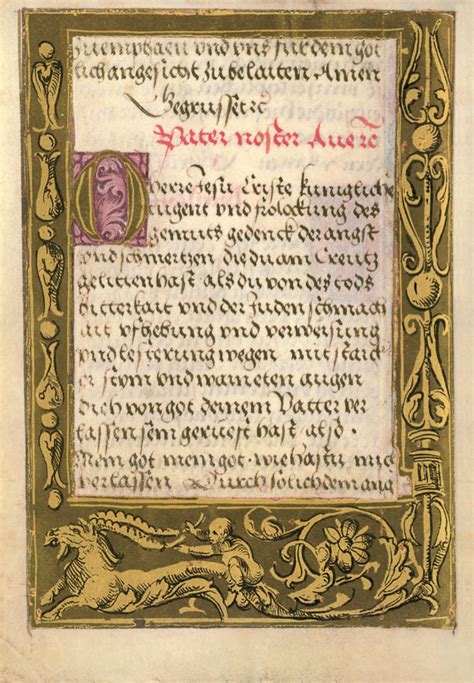 zuempfahen und uns fur dem got
lich angesicht zubelaiten Amen
Gegrusset ꝛc
Pater noster Ave ꝛc
O herr Jesu Criste kunigliche
tugent und frolockung des
gemuts gedenck der angst
und schmertzen die du am Creutz
gelitten hast als du von des tods
bitterkait und der Juden schmach
ait ufhebung und verweisung
und lesterung wegen mit starck
er stym und waineten augen
dich von got deinem Vatter ver
lassen sein geruest hast also .
Mein got mein got . wie hastu mich
verlassen Durch solich dem ang